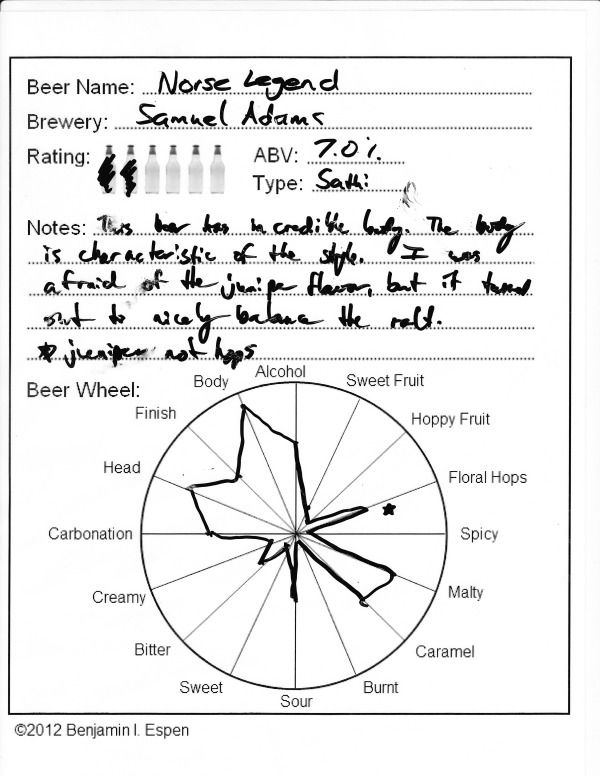 Beer Name: Norse Legend
Brewery: Samuel Adams
Rating:
ABV: 7.0%
Type: Sahti
Notes: This beer has incredible body. The body
is characteristic of the style. I was
afraid of the juniper flavor, but it turned
out to nicely balance the malt.
★ juniper not hops
Beer Wheel:
Alcohol
Sweet Fruit
Hoppy Fruit
Floral Hops
★
Spicy
Malty
Caramel
Burnt
Sour
Sweet
Bitter
Creamy
Carbonation
Head
Finish
Body
©2012 Benjamin I. Espen